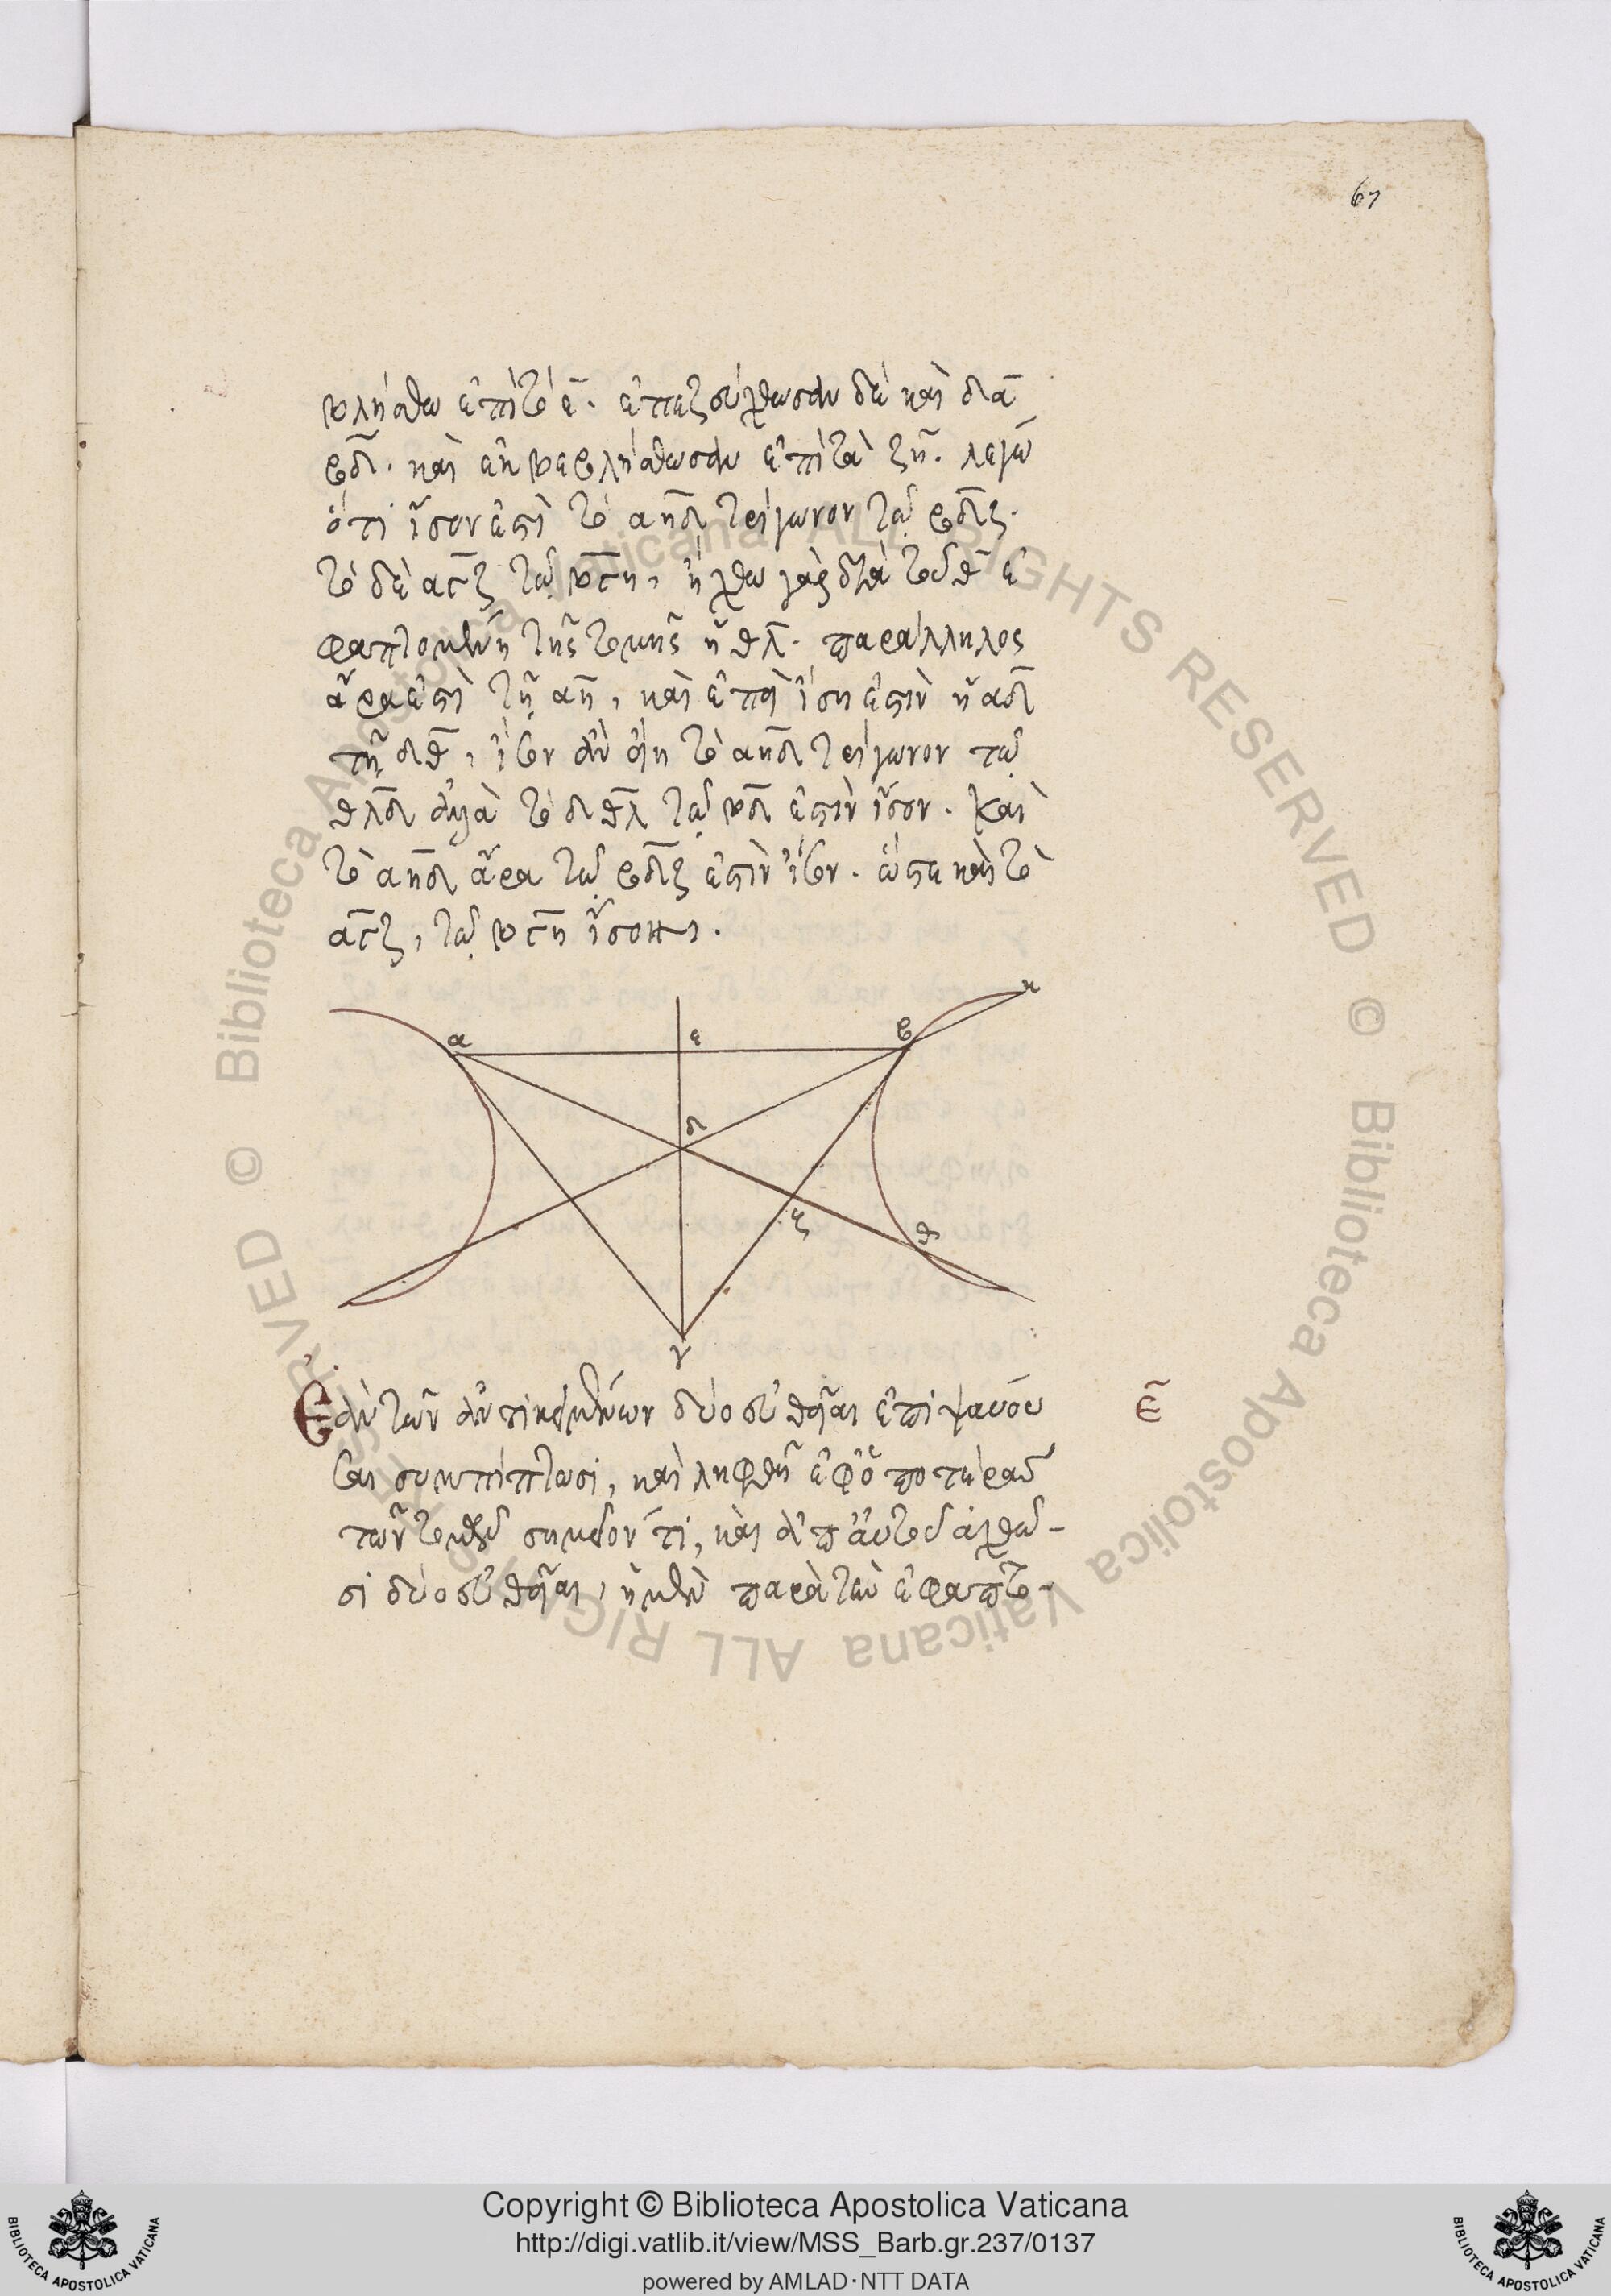 67
βλήσθω ἐπὶ τὸ ε̄. ἐπεζεύχθωσαν δὲ καὶ δ̄ᾱ
β̄δ̄. καὶ ἐκβεβλήσθωσαν ἐπὶ τὰ ζ̄η̄. λέγω
ὅτι ἴσον ἐστὶ τὸ ᾱη̄δ̄ τρίγωνον τῷ β̄δ̄ζ̄.
τὸ δὲ ᾱγ̄ζ̄ τῷ β̄γ̄η̄, ἤχθω γὰρ διὰ τοῦ θ̄ ἐ
φαπτομένη τῆς τομῆς ἡ θ̄λ̄. παράλληλος
ἄρα ἐστὶ τῇ ᾱη̄, καὶ ἐπεὶ ἴση ἐστὶν ἡ ᾱδ̄
τῇ δ̄θ̄, ἴσον ἂν εἴη τὸ ᾱη̄δ̄ τρίγωνον τῷ
θ̄λ̄δ̄ ἀλλὰ τὸ δ̄θ̄λ̄ τῷ β̄δ̄ ἐστὶν ἴσον. Καὶ
τὸ ᾱη̄δ̄ ἄρα τῷ β̄δ̄ζ̄ ἐστὶν ἴσον. ὥστε καὶ τὸ
ᾱγ̄ζ̄, τῷ β̄γ̄η̄ ἴσον.
η
α ε β
δ
ζ θ
γ
Ἐὰν τῶν ἀντικειμένων δύο εὐθεῖαι ἐπιψαύου ε̄
σαι συμπίπτωσι, καὶ ληφθῇ ἐφ' ὁποτέρας
τῶν τομῶν σημεῖόν τι, καὶ ἀπ' αὐτοῦ ἀχθῶ-
σι δύο εὐθεῖαι, ἡ μὲν παρὰ τὴν ἐφαπτο-
Copyright © Biblioteca Apostolica Vaticana
http://digi.vatlib.it/view/MSS_Barb.gr.237/0137
powered by AMLAD·NTT DATA
BIBLIOTECA APOSTOLICA VATICANA
BIBLIOTECA APOSTOLICA VATICANA
© Biblioteca Apostolica Vaticana ALL RIGHTS RESERVED © Biblioteca Apostolica Vaticana ALL RIGHTS RESERVED